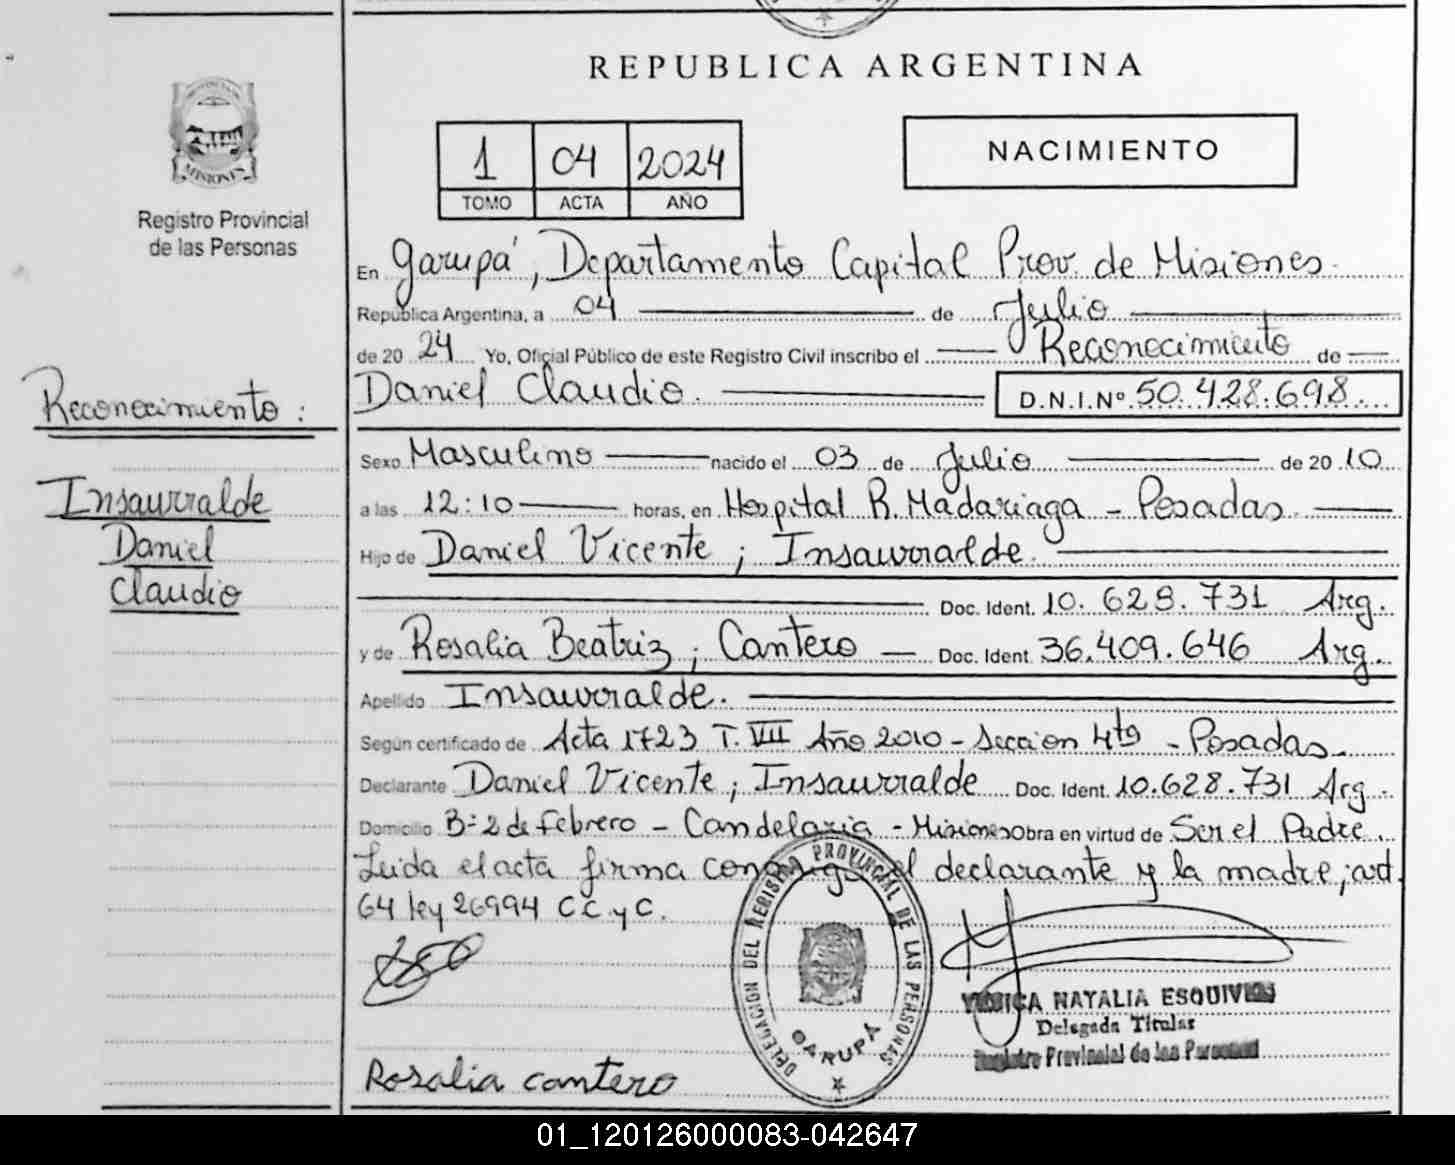 REPUBLICA ARGENTINA
1 04 2024
TOMO ACTA AÑO
NACIMIENTO
MISIONES
Registro Provincial
de las Personas
En Garupá, Departamento Capital Prov. de Misiones.
República Argentina, a 04 de Julio
de 20 24 Yo, Oficial Público de este Registro Civil inscribo el Reconocimiento de
Daniel Claudio. D.N.I.Nº 50.428.698
Reconocimiento:
Insaurralde
Daniel
Claudio
Sexo Masculino nacido el 03 de Julio de 20 10
a las 12:10 horas, en Hospital R. Madariaga - Posadas
Hijo de Daniel Vicente; Insaurralde.
Doc. Ident. 10.628.731 Arg.
y de Rosalia Beatriz; Cantero Doc. Ident. 36.409.646 Arg.
Apellido Insaurralde.
Según certificado de Acta 1723 T. VII Año 2010 - Seccion 4ta - Posadas.
Declarante Daniel Vicente; Insaurralde Doc. Ident. 10.628.731 Arg.
Domicilio Bº 2 de Febrero - Candelaria - Misiones Obra en virtud de Ser el Padre.
Leida el acta firma conmigo el declarante y la madre; art.
64 ley 26994 C.C. y C.
DELEGACION DEL REGISTRO PROVINCIAL DE LAS PERSONAS
GARUPÁ
NATALIA ESQUIVEL
Delegada Titular
Registro Provincial de las Personas
Rosalia cantero
01_120126000083-042647